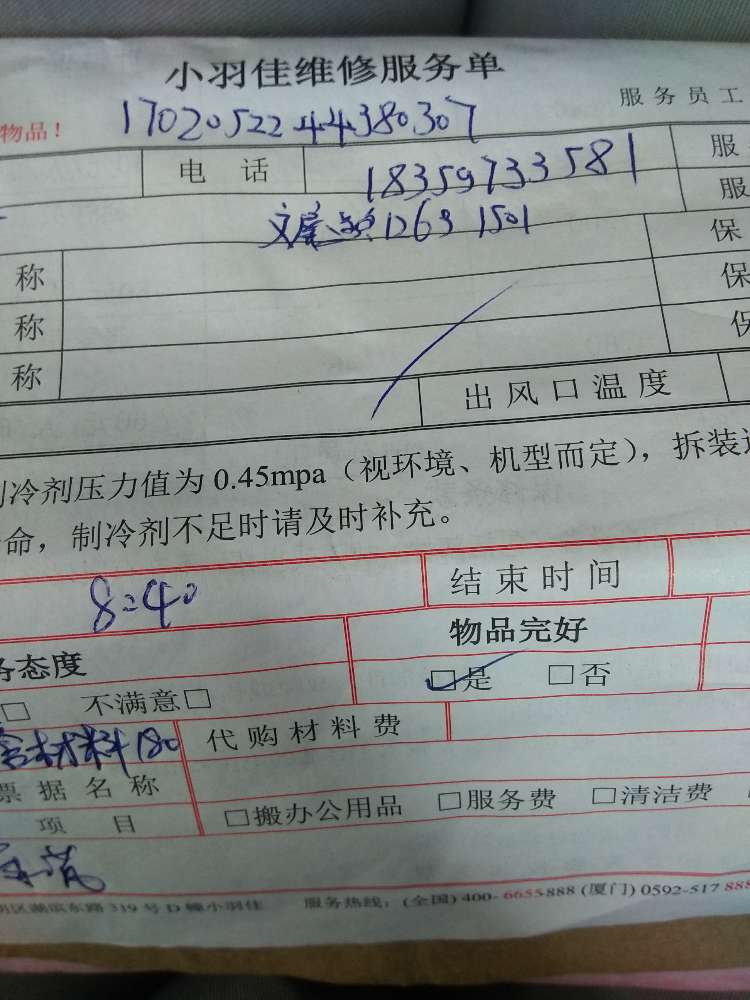 小羽佳维修服务单
服务员工
物品！ 17020522 44380307
电话 18359733581 服
服
1263 1501 保
称 保
称
称
出风口温度
冷剂压力值为0.45mpa（视环境、机型而定），拆装
命，制冷剂不足时请及时补充。
8:40 结束时间
态度 物品完好
□ 不满意□ □是 □否
含材料180 代购材料费
票据名称
项目 □搬办公用品 □服务费 □清洁费
区湖滨东路319号D幢小羽佳 服务热线：(全国) 400-6655888 (厦门) 0592-517 888